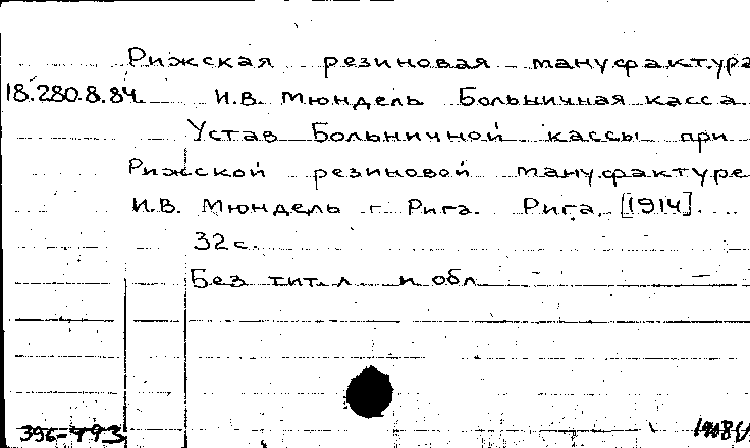 Рижская резиновая мануфактура
18.280.8.84. И.В. Мюндель Больничная касса
Устав Больничной кассы при
Рижской резиновой мануфактуре
И.В. Мюндель г. Рига. Рига, [1914].
32 с.
Без тит. л. и обл.
396-793